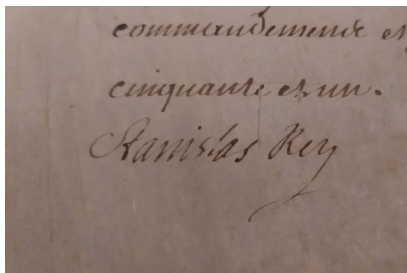 commandemende et
cinquante et un.
Stanislas Rey